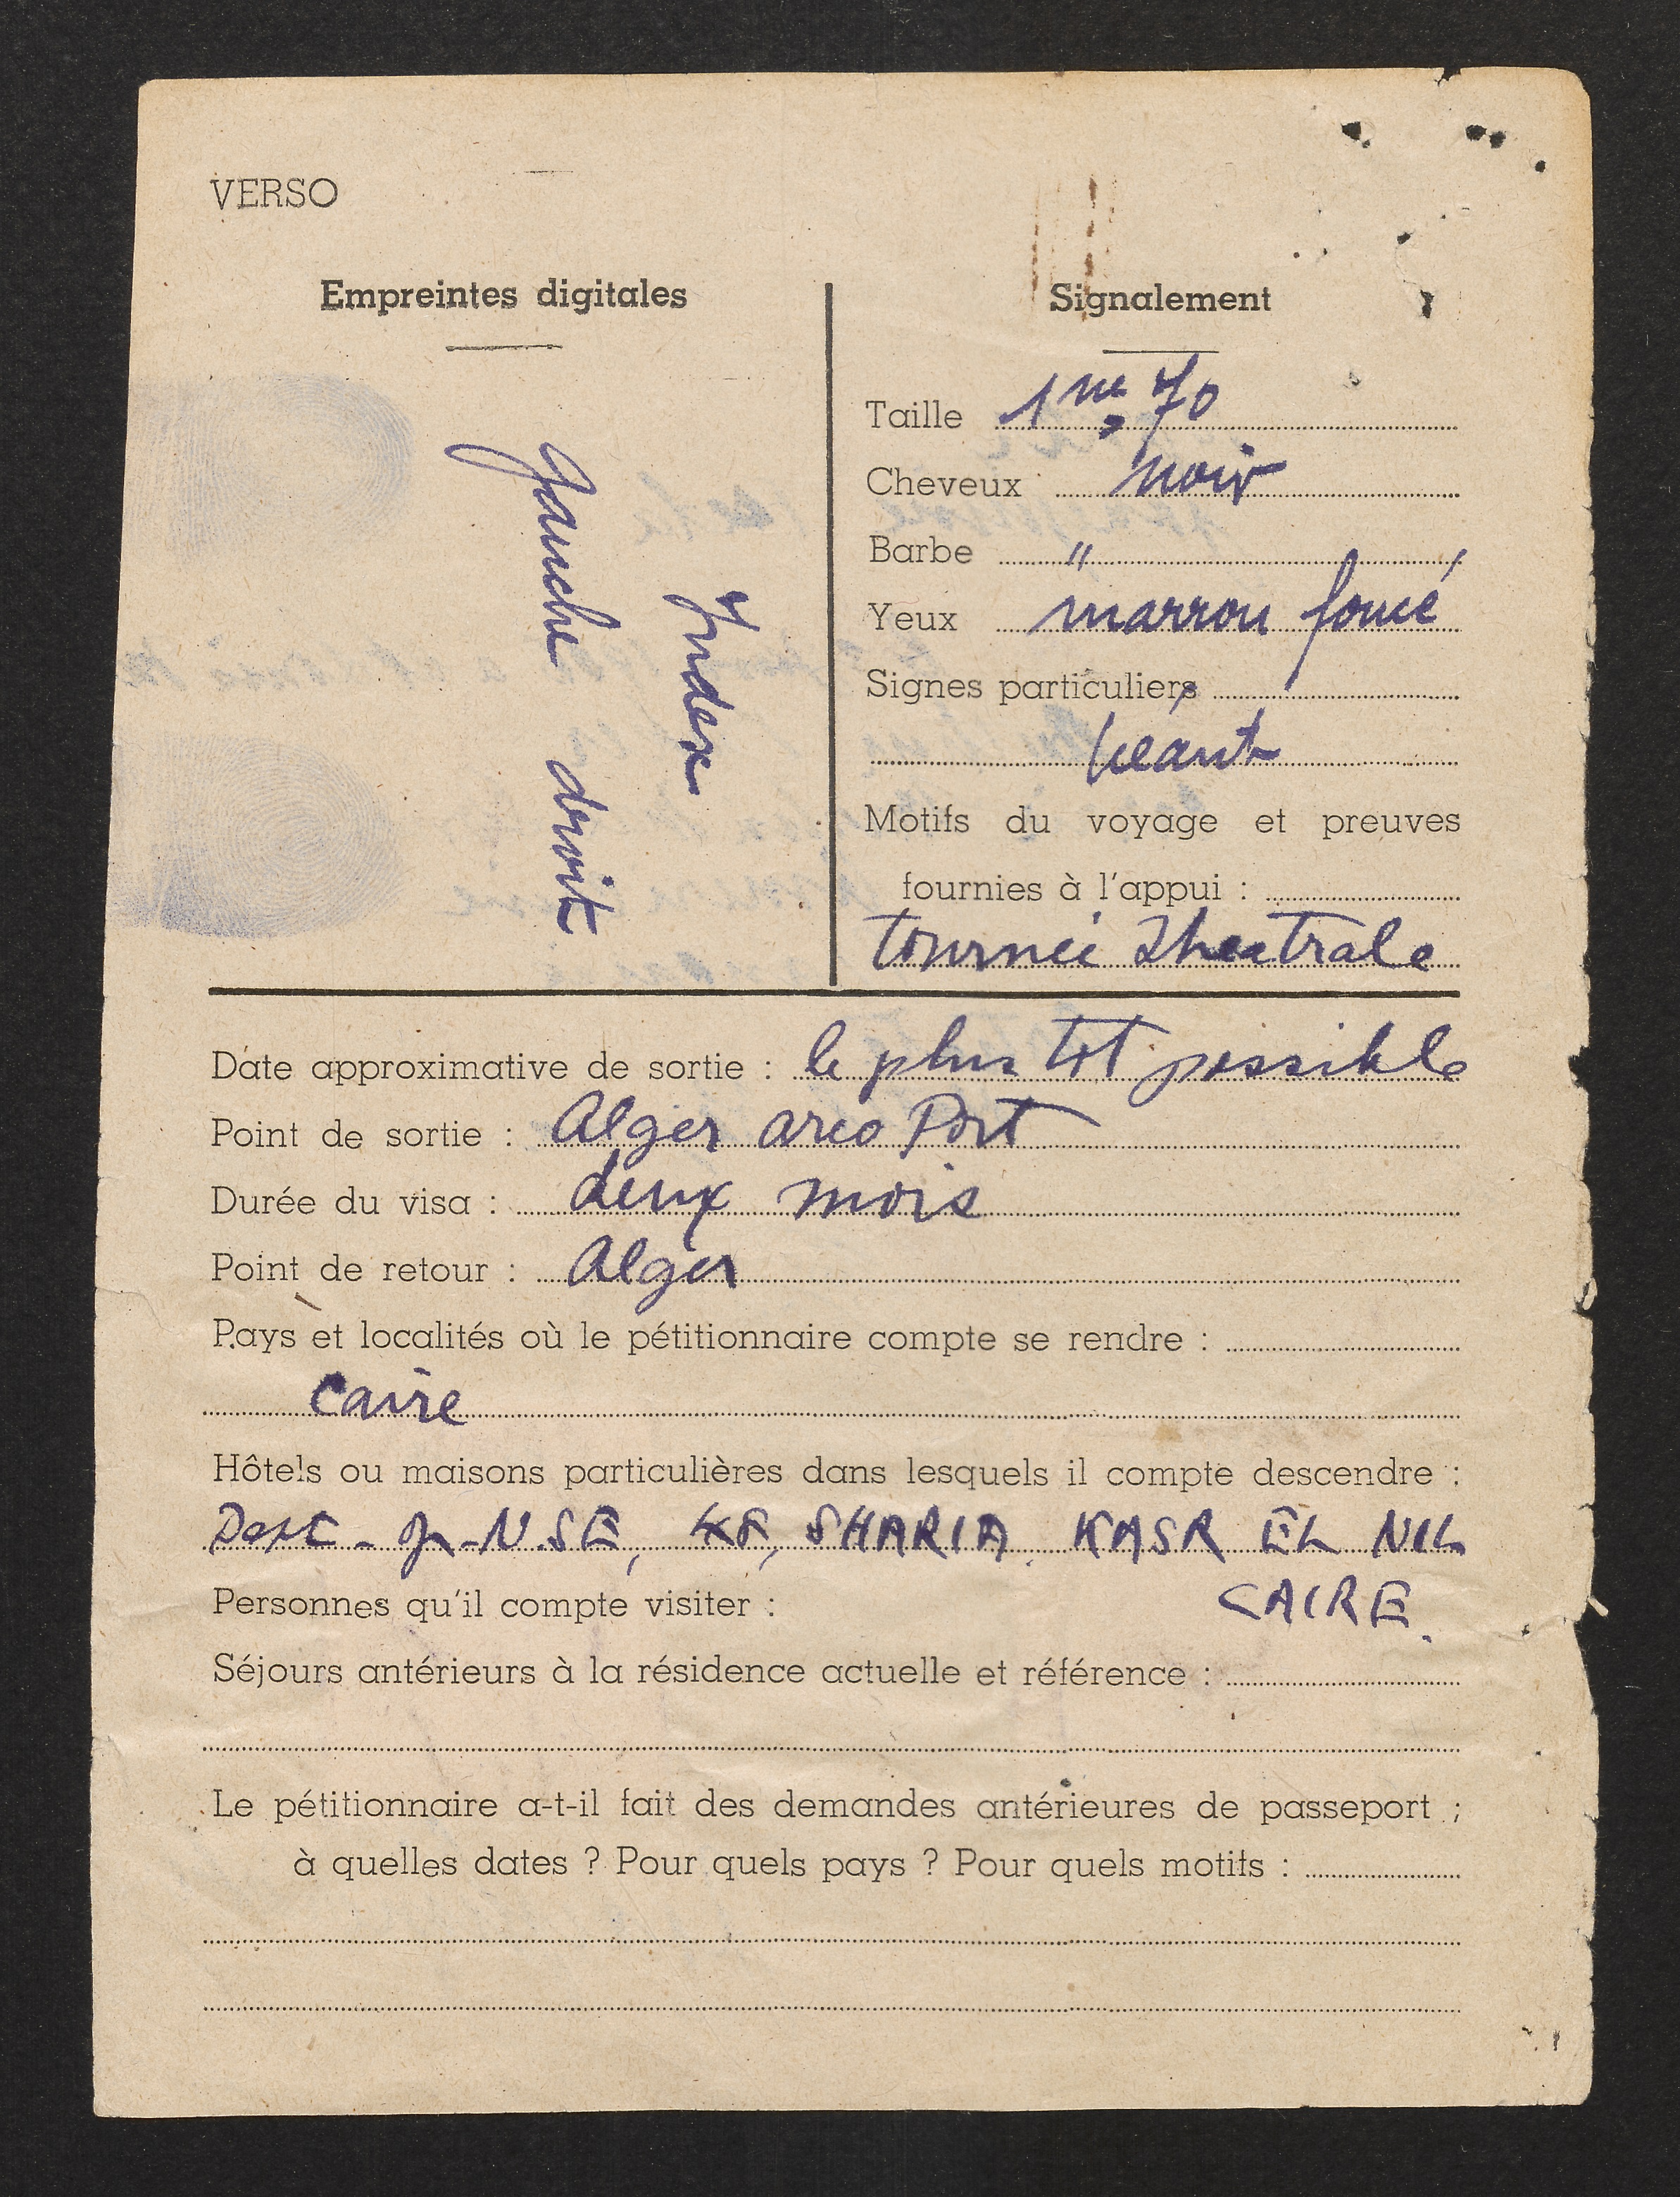 VERSO
Empreintes digitales
Gauche droit
Index
Signalement
Taille 1m,70
Cheveux noir
Barbe "
Yeux marron foncé
Signes particuliers
Néant
Motifs du voyage et preuves
fournies à l'appui :
tournée Theatrale
Date approximative de sortie : le plus tot possible
Point de sortie : Alger areo Port
Durée du visa : deux mois
Point de retour : Alger
Pays et localités où le pétitionnaire compte se rendre :
Caire
Hôtels ou maisons particulières dans lesquels il compte descendre :
N.SE, SHARIA KASR EL NIL
CAIRE.
Personnes qu'il compte visiter :
Séjours antérieurs à la résidence actuelle et référence :
Le pétitionnaire a-t-il fait des demandes antérieures de passeport ;
à quelles dates ? Pour quels pays ? Pour quels motifs :